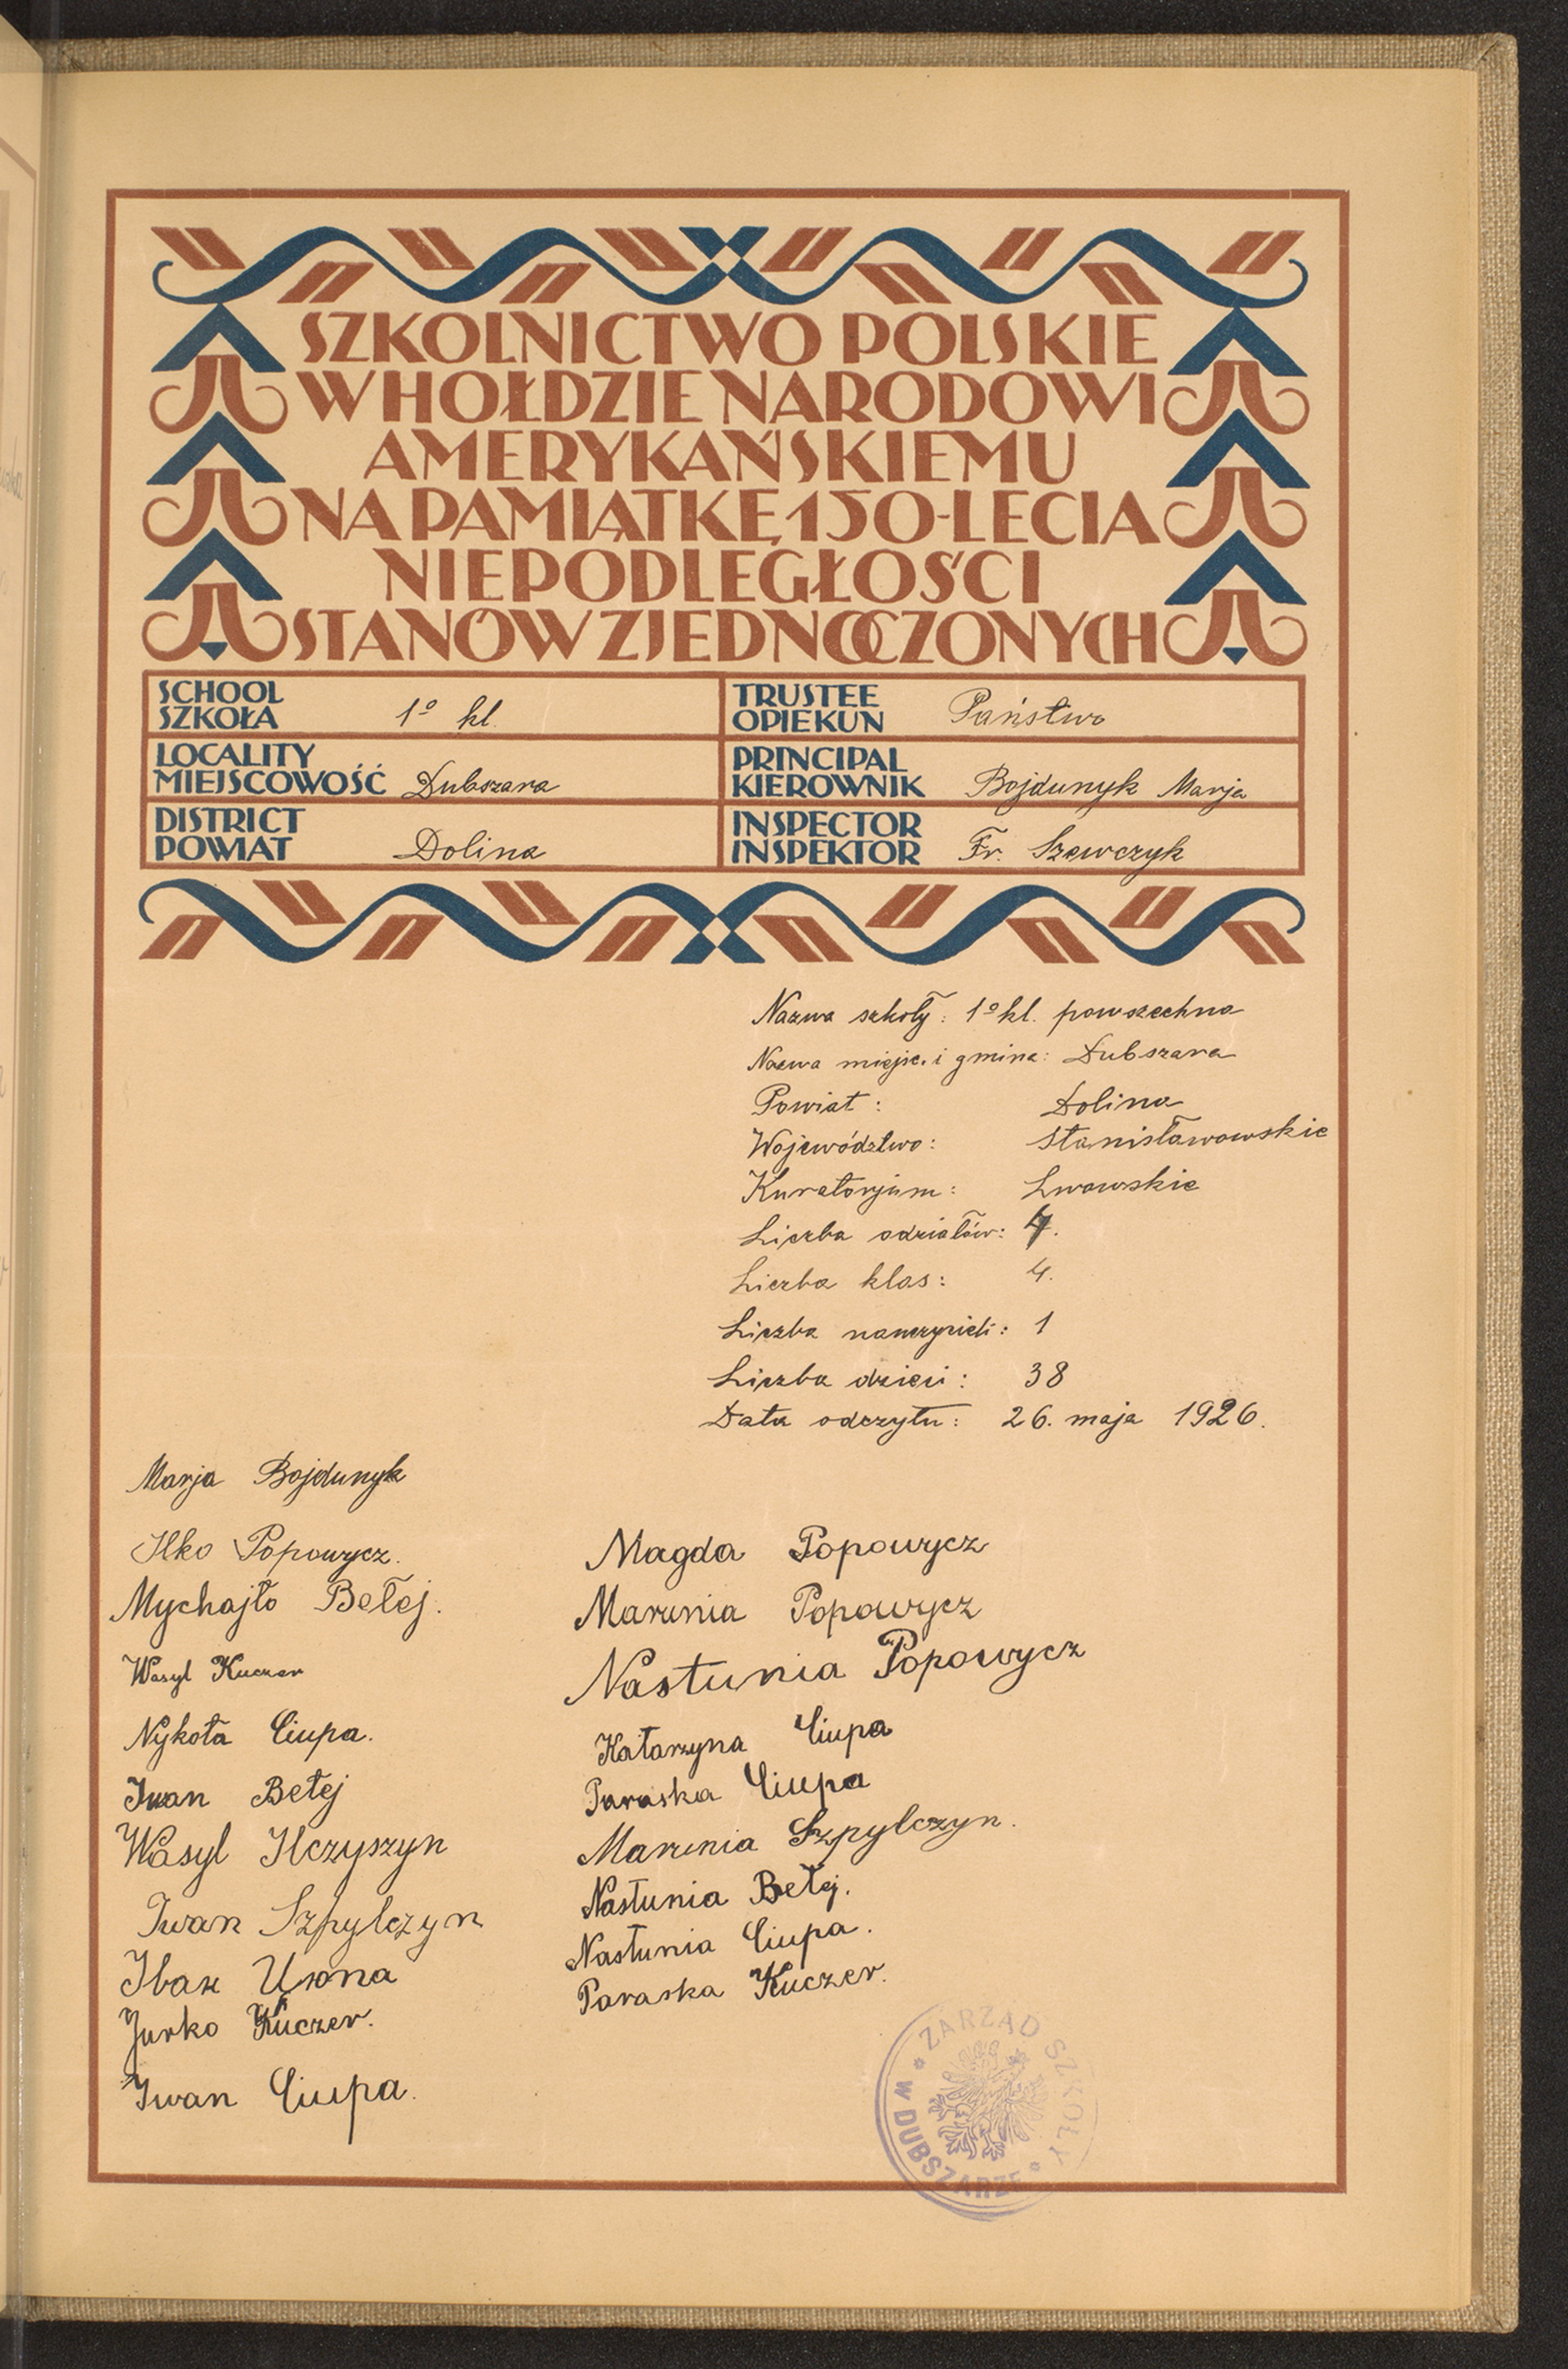 SZKOLNICTWO POLSKIE
W HOŁDZIE NARODOWI
AMERYKAŃSKIEMU
NA PAMIĄTKĘ 150-LECIA
NIEPODLEGŁOŚCI
STANÓW ZJEDNOCZONYCH
SCHOOL
SZKOŁA 1º kl.
TRUSTEE
OPIEKUN Państwo
LOCALITY
MIEJSCOWOŚĆ Dubszara
PRINCIPAL
KIEROWNIK Bojdunyk Marja
DISTRICT
POWIAT Dolina
INSPECTOR
INSPEKTOR Fr. Szewczyk
Nazwa szkoły: 1º kl. powszechna
Nazwa miejsc. i gmina: Dubszara
Powiat: Dolina
Województwo: Stanisławowskie
Kuratorjum: Lwowskie
Liczba odziałów: 4.
Liczba klas: 4.
Liczba nauczycieli: 1
Liczba dzieci: 38
Data odczytu: 26. maja 1926.
Marja Bojdunyk
Ilko Popowycz.
Mychajło Bełej.
Wasyl Kuczer
Nykoła Ciupa.
Iwan Bełej
Wasyl Ilczyszyn
Iwan Szpylczyn
Jurko Kuczer.
Iwan Ciupa.
Magda Popowycz
Marunia Popowycz
Nastunia Popowycz
Katarzyna Ciupa
Paraska Ciupa
Marunia Szpylczyn.
Nastunia Bełej.
Nastunia Ciupa.
Paraska Kuczer.
ZARZĄD SZKOŁY
W DUBSZARZE